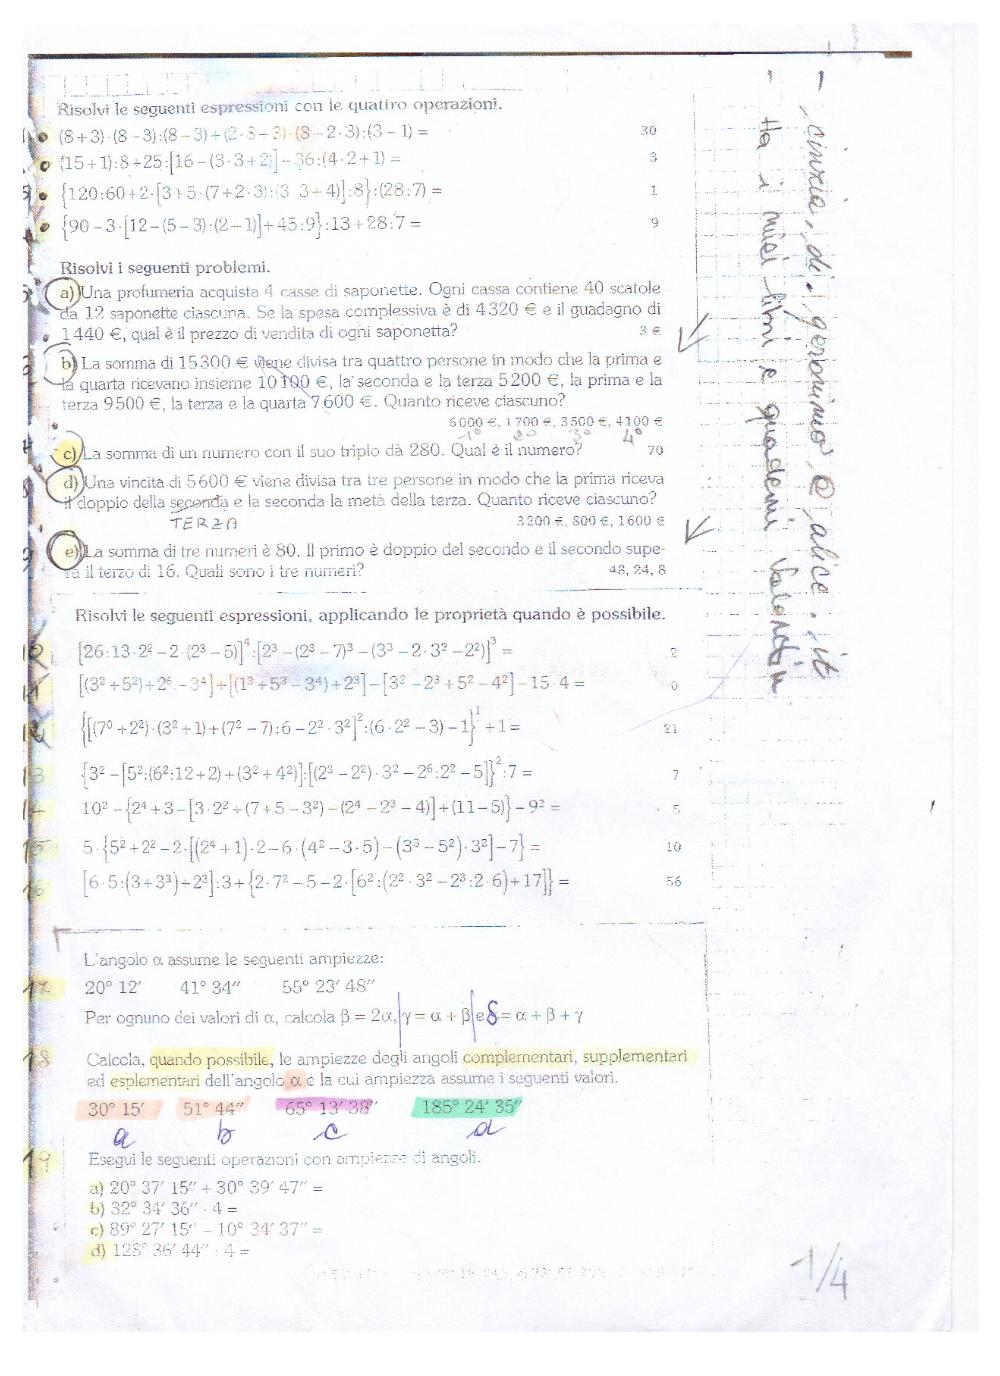 Risolvi le seguenti espressioni con le quattro operazioni.
(8+3)·(8-3):(8-3)+(2·8+3)·(8-2·3):(3-1) = 30
(15+1):8+25:[16-(3·3+2)]-36:(4·2+1) = 3
{120:60+2·[3+5·(7+2·3):(3·3+4)]:8}:(28:7) = 1
{90-3·[12-(5-3):(2-1)]+45:9}:13+28:7 = 9
Risolvi i seguenti problemi.
a) Una profumeria acquista 4 casse di saponette. Ogni cassa contiene 40 scatole
da 12 saponette ciascuna. Se la spesa complessiva è di 4320 € e il guadagno di
1440 €, qual è il prezzo di vendita di ogni saponetta? 3 €
b) La somma di 15300 € viene divisa tra quattro persone in modo che la prima e
la quarta ricevano insieme 10100 €, la seconda e la terza 5200 €, la prima e la
terza 9500 €, la terza e la quarta 7600 €. Quanto riceve ciascuno?
6000 €, 1700 €, 3500 €, 4100 €
1° 2° 3° 4°
c) La somma di un numero con il suo triplo dà 280. Qual è il numero? 70
d) Una vincita di 5600 € viene divisa tra tre persone in modo che la prima riceva
il doppio della seconda e la seconda la metà della terza. Quanto riceve ciascuno?
TERZA 3200 €, 800 €, 1600 €
e) La somma di tre numeri è 80. Il primo è doppio del secondo e il secondo supe-
ra il terzo di 16. Quali sono i tre numeri? 48, 24, 8
Risolvi le seguenti espressioni, applicando le proprietà quando è possibile.
[26:13·2²-2·(2³-5)]⁴:[2³-(2³-7)³-(3³-2·3²-2²)]³ = 2
[(3²+5²)+2⁶-3⁴]+[(1³+5³-3⁴)+2³]-[3²-2³+5²-4²]-15·4 = 0
{[(7⁰+2²)·(3²+1)+(7²-7):6-2²·3²]²:(6·2²-3)-1}¹+1 = 21
13 {3²-[5²:(6²:12+2)+(3²+4²)]:[(2³-2²)·3²-2⁶:2²-5]}²:7 = 7
14 10²-{2⁴+3-[3·2²+(7+5-3²)-(2⁴-2³-4)]+(11-5)}-9² = 5
15 5·{5²+2²-2·[(2⁴+1)·2-6·(4²-3·5)-(3³-5²)·3²]-7} = 10
16 [6·5:(3+3³)+2³]:3+{2·7²-5-2·[6²:(2²·3²-2³:2·6)+17]} = 56
L'angolo α assume le seguenti ampiezze:
17 20° 12′ 41° 34″ 55° 23′ 48″
Per ognuno dei valori di α, calcola β = 2α, γ = α + β e δ = α + β + γ
18 Calcola, quando possibile, le ampiezze degli angoli complementari, supplementari
ed esplementari dell'angolo α e la cui ampiezza assume i seguenti valori.
30° 15′ 51° 44″ 65° 13′ 38″ 185° 24′ 35″
a b c d
19 Esegui le seguenti operazioni con ampiezze di angoli.
a) 20° 37′ 15″ + 30° 39′ 47″ =
b) 32° 34′ 36″ · 4 =
c) 89° 27′ 15″ - 10° 34′ 37″ =
d) 128° 36′ 44″ : 4 =
1/4
cinzia.di.geronimo@alice.it
Ha i miei libri e quaderni Valentin